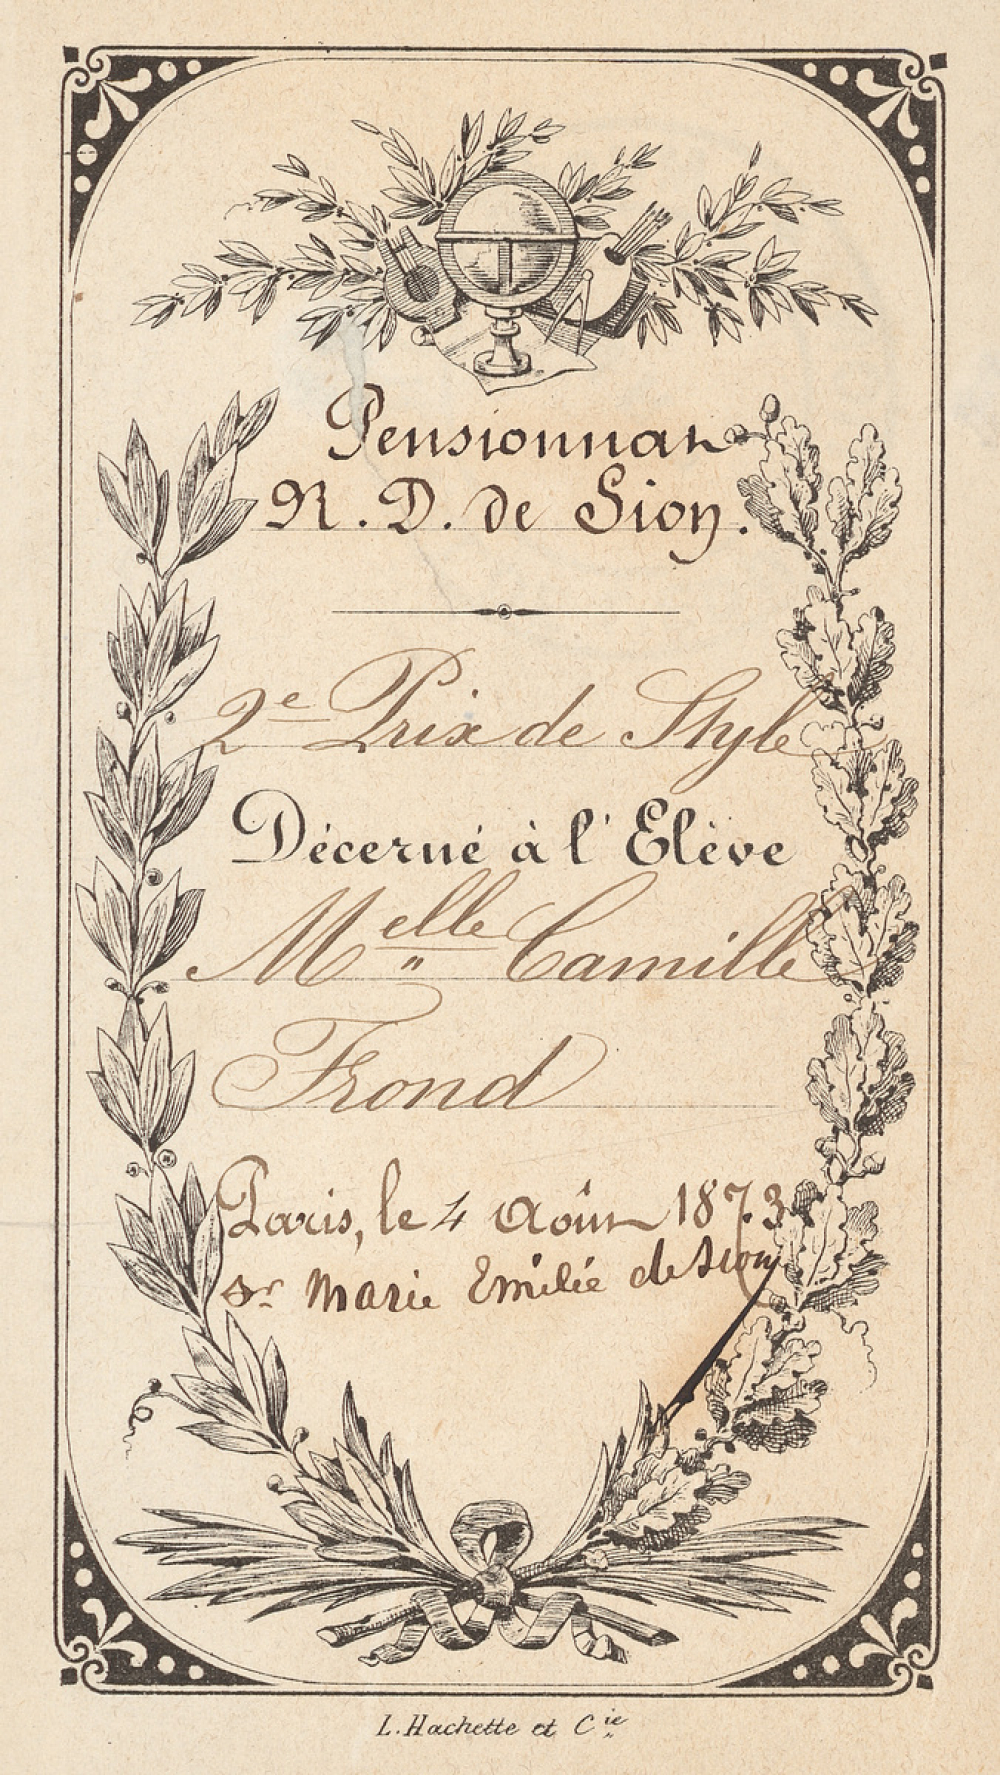 Pensionnat
N. D. de Sion.
2e Prix de Style
Décerné à l'Elève
Melle Camille
Frond
Paris, le 4 Août 1873
Sr Marie Emilie de Sion
L. Hachette et Cie